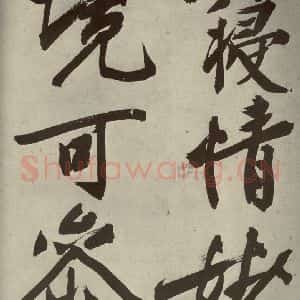 寝情
境可
Shufawang.CN